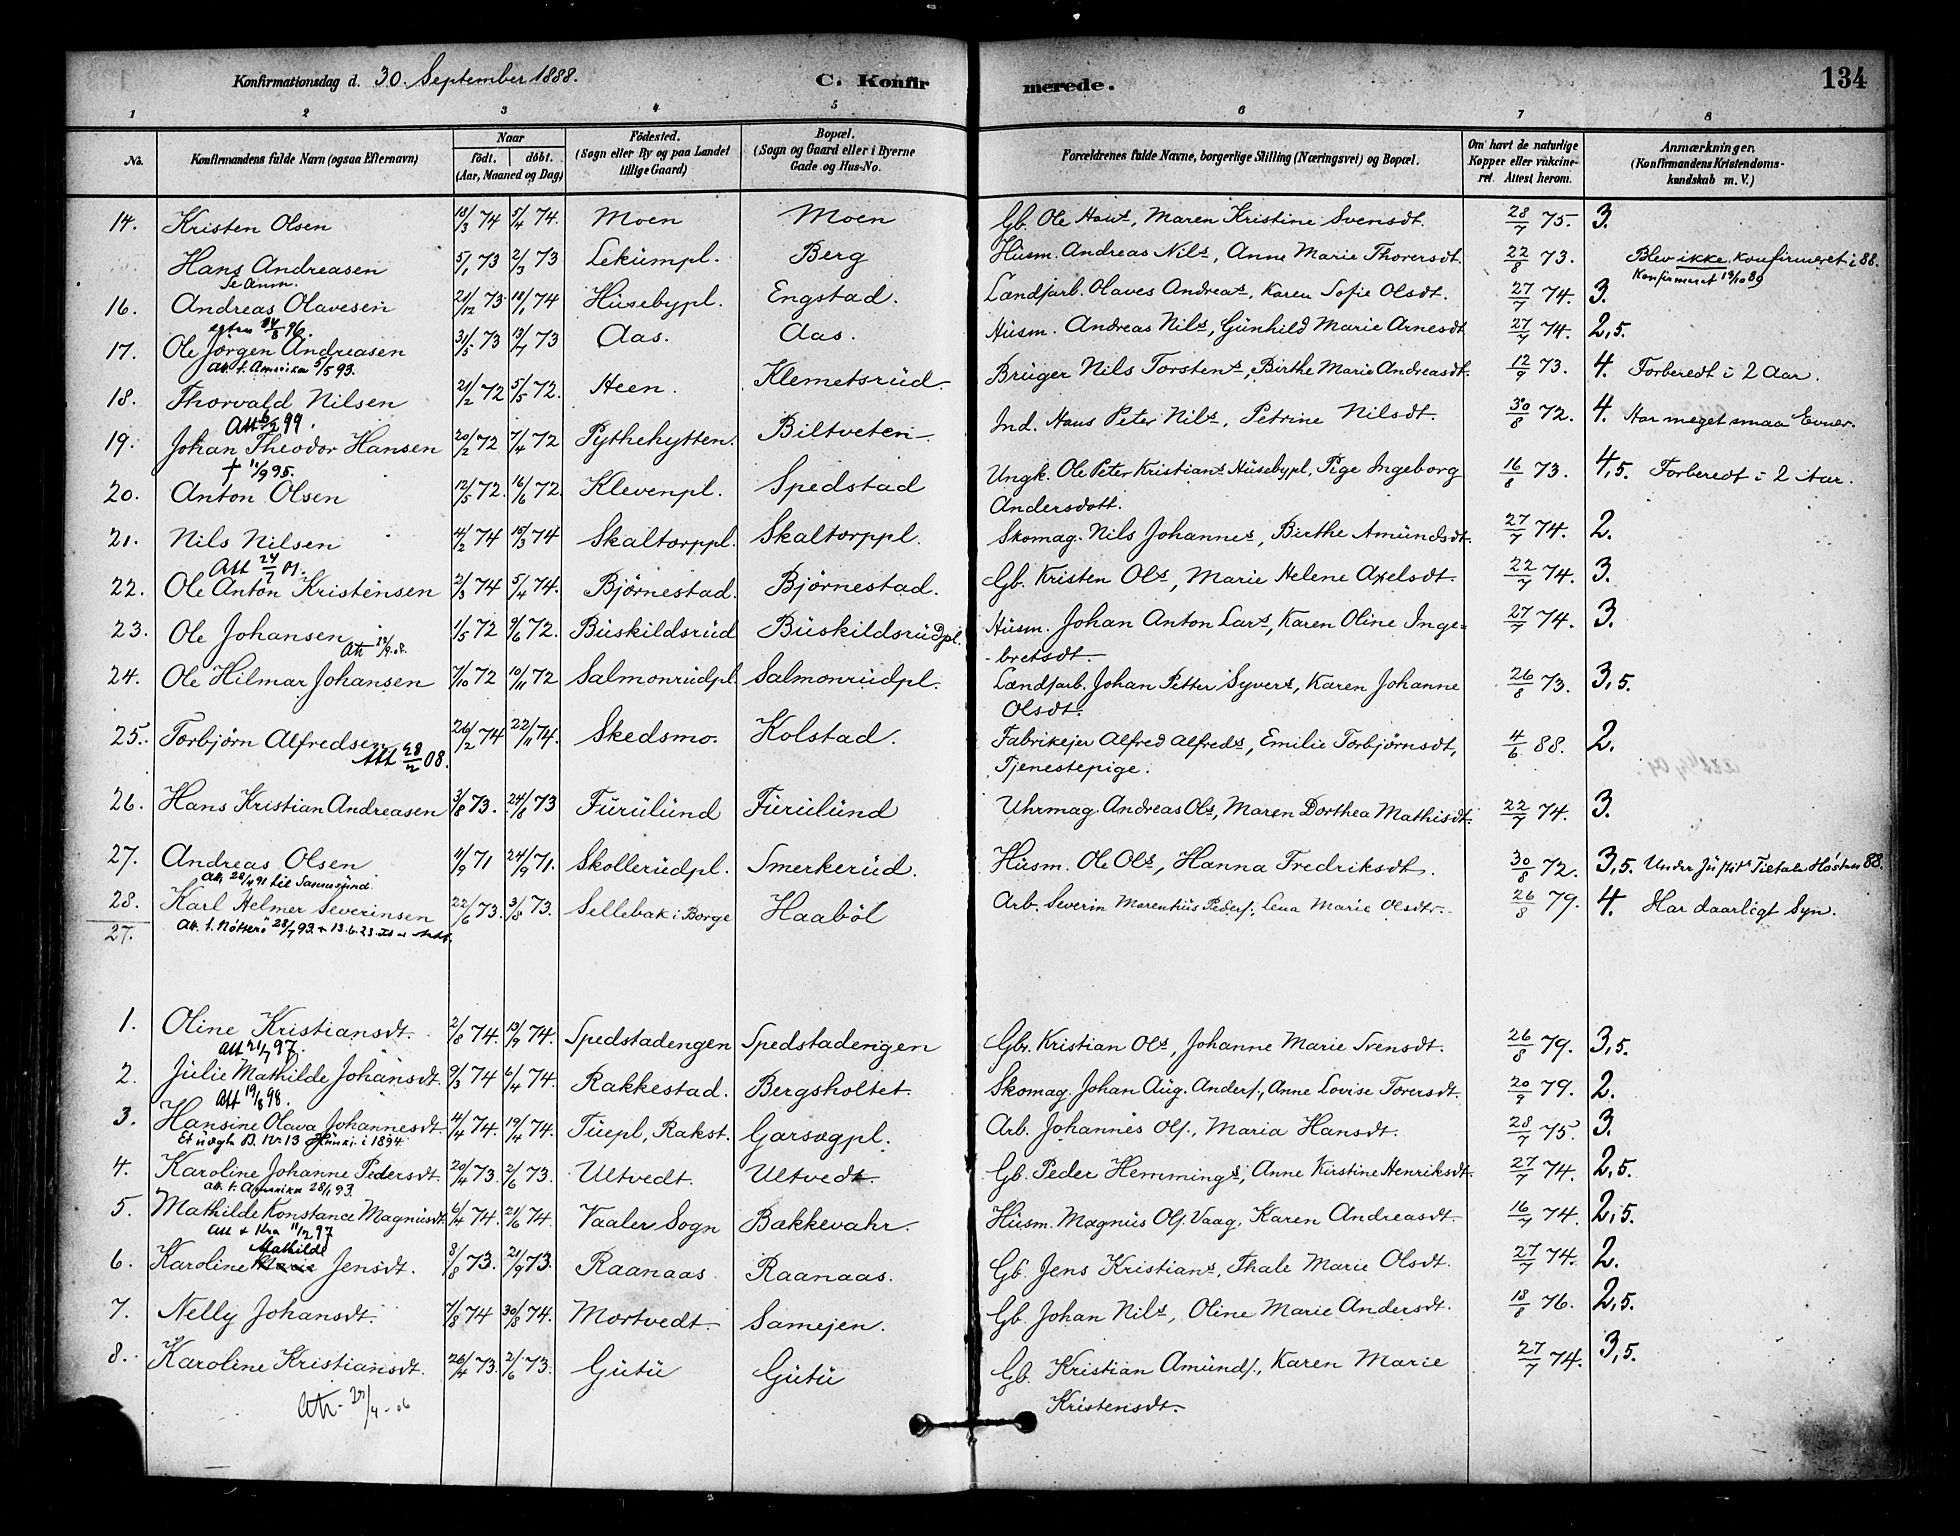 Konfirmationsdag d. 30. September 1888. C. Konfirmerede. 134
1 2 3 4 5 6 7 8
No. Konfirmandens fulde Navn (ogsaa Efternavn) Naar født. døbt. (Aar, Maaned og Dag) Fødested. (Sogn eller By og paa Landet tillige Gaard) Bopæl. (Sogn og Gaard eller i Byerne Gade og Hus-No. Forældrenes fulde Navne, borgerlige Stilling (Næringsvei) og Bopæl. Om havt de naturlige Kopper eller vakcineret. Attest herom. Anmærkninger. (Konfirmandens Kristendomskundskab m. V.)
14. Kristen Olsen 18/3 74 5/4 74. Moen Moen Gb. Ole Hans, Maren Kristine Svensdt. 28/7 75. 3.
Hans Andreasen 5/1 73 2/3 73 Lekumpl. Berg Husm. Andreas Nils, Anne Marie Thorersdt. 22/8 73. Blev ikke konfirmeret i 88.
Se anm. Konfirmeret 13/10 89
16. Andreas Olavesen 21/12 73 18/1 74 Husebypl. Engstad. Landarb. Olaves Andreas, Karen Sofie Olsdt. 27/7 74. 3.
96.
17. Ole Jörgen Andreasen 31/5 73 13/7 73 Aas. Aas. Husm. Andreas Nils, Gunhild Marie Arnesdt. 27/7 74. 2,5.
Att. t. Amerika 5/5 93.
18. Thorvald Nilsen 21/2 72 5/5 72. Heen. Klemetsrud Bruger Nils Torstens, Birthe Marie Andreasdt. 12/9 73. 4. Forberedt i 2 Aar.
Att 99.
19. Johan Theodor Hansen 20/2 72 7/4 72 Pythehytten. Biltveten Ind. Hans Peter Nils, Petrine Nilsdt. 30/8 72. 4. Har meget smaa Evner.
† 11/9 95.
20. Anton Olsen 12/5 72. 16/6 72. Klevenpl. Spedstad Ungk. Ole Peter Kristians Husebypl, Pige Ingeborg 16/8 73. 4,5. Forberedt i 2 Aar.
Andersdatt.
21. Nils Nilsen 4/2 74 15/3 74 Skaltorppl. Skaltorppl. Skomag. Nils Johannes, Birthe Amundsdt. 27/7 74. 2.
Att 24/7 01.
22. Ole Anton Kristensen 2/3 74 5/4 74. Björnestad. Björnestad. Gb. Kristen Ols, Marie Helene Axelsdt. 22/7 74. 3.
23. Ole Johansen 1/5 72 9/6 72. Buskildsrud Buskildsrudpl. Husm. Johan Anton Lars, Karen Oline Inge-
bretsdt. 27/7 74. 3.
24. Ole Hilmar Johansen 7/10 72 10/11 72 Salmonrudpl. Salmonrudpl. Landarb. Johan Petter Syvers, Karen Johanne 26/8 73. 3,5.
Olsdt.
25. Torbjörn Alfredsen 26/2 74 22/11 74. Skedsmo. Kolstad. Fabrikejer Alfred Alfreds, Emilie Torbjörnsdt, 4/6 88. 2.
Att 08. Tjenestepige.
26. Hans Kristian Andreasen 3/8 73. 24/8 73 Furulund Furulund Uhrmag. Andreas Ols, Maren Dorthea Mathisdt. 22/7 74. 3.
27. Andreas Olsen 4/9 71 24/9 71. Skollerudpl. Smerkerud. Husm. Ole Ols, Hanna Fredriksdt. 30/8 72. 3,5. Under Tiltale Høsten 88.
Att. 28/4 91 til Sannesund.
28. Karl Helmer Severinsen 22/6 73. 3/8 73. Sellebak i Borge Haaböl Arb. Severin Marentius Peders, Lena Marie Olsdtr. 26/8 79. 4. Har daarligt Syn.
27. Att. t. Nötterö 28/7 93. + 13.6.23.
1. Oline Kristiansdt. 2/8 74. 13/9 74. Spedstadengen Spedstadengen Gbr. Kristian Ols, Johanne Marie Svensdt. 26/8 79. 3,5.
Att 21/7 97.
2. Julie Mathilde Johansdt. 9/3 74 6/4 74. Rakkestad. Bergsholtet. Skomag. Johan Aug. Anders, Anne Lovise Torersdt. 20/9 79. 2.
Att 19/8 98.
3. Hansine Olava Johannesdt. 4/4 74. 19/4 74. Tuepl, Rakst. Garsegpl. Arb. Johannes Ols., Maria Hansdt. 28/7 75. 3.
i 1894
4. Karoline Johanne Pedersdt. 20/4 73. 2/6 73. Ultvedt. Ultvedt Gb. Peder Hemmings, Anne Kirstine Henriksdt. 27/7 74. 2,5.
Att. t. Amerika 28/1 93.
5. Mathilde Konstance Magnusdt. 6/4 74. 21/6 74. Vaaler Sogn Bakkevahr. Husm. Magnus Ols. Vaag, Karen Andreasdt. 16/7 74. 2,5.
Att t Kra 11/2 97
Mathilde
6. Karoline Marie Jensdt. 8/8 73. 21/9 73. Raanaas. Raanaas. Gb. Jens Kristians, Thale Marie Olsdt. 27/7 74. 2.
7. Nelly Johansdt. 7/8 74 30/8 74. Mortvedt. Samejen. Gb. Johan Nils, Oline Marie Andersdt. 18/8 76. 2,5.
8. Karoline Kristiansdt. 26/4 73. 2/6 73. Gutu Gutu Gb. Kristian Amunds., Karen Marie 27/7 74. 3,5.
Kristensdt.